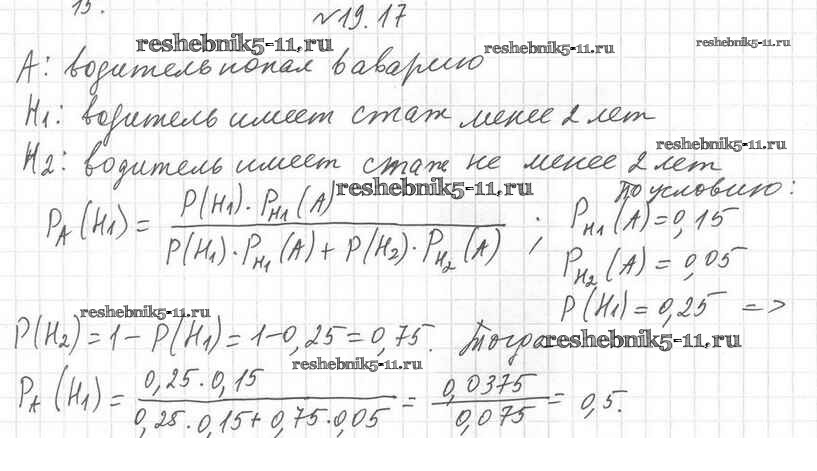 15.
№19.17
reshebnik5-11.ru
reshebnik5-11.ru
reshebnik5-11.ru
A: водитель попал в аварию
H1: водитель имеет стаж менее 2 лет
reshebnik5-11.ru
H2: водитель имеет стаж не менее 2 лет
reshebnik5-11.ru
По условию:
P_A(H1) = P(H1)·P_H1(A) / P(H1)·P_H1(A) + P(H2)·P_H2(A) ;
P_H1(A) = 0,15
P_H2(A) = 0,05
P(H1) = 0,25 =>
reshebnik5-11.ru
P(H2) = 1 - P(H1) = 1 - 0,25 = 0,75. Тогда
reshebnik5-11.ru
reshebnik5-11.ru
P_A(H1) = 0,25·0,15 / 0,25·0,15 + 0,75·0,05 = 0,0375 / 0,075 = 0,5.